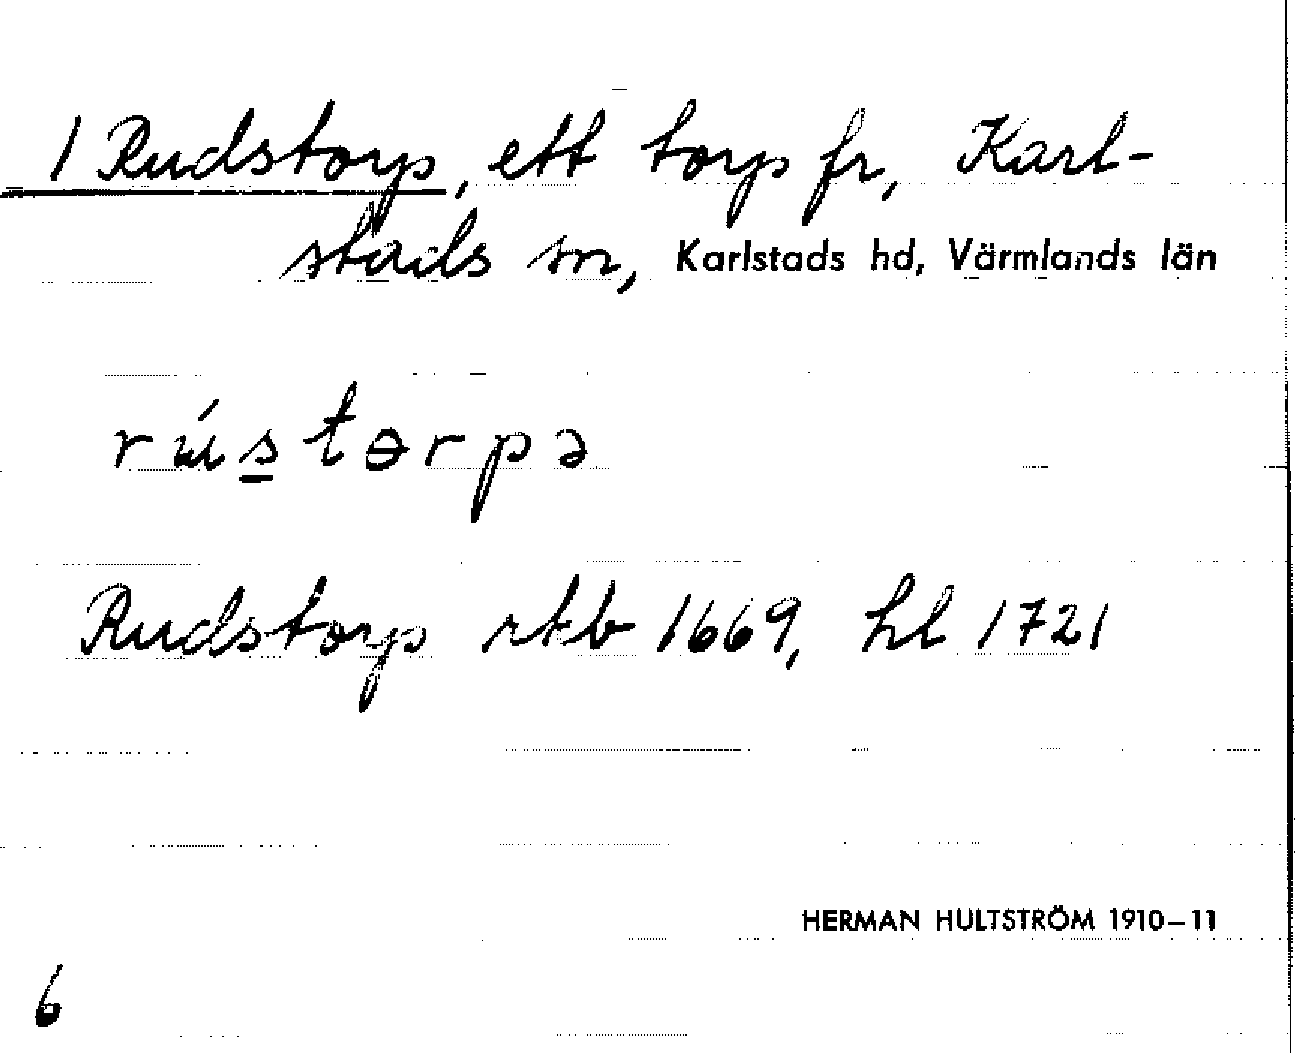 1 Rudstorp, ett torp fr, Karl-
stads sn, Karlstads hd, Värmlands län
rústɵrpə
Rudstorp rkb 1669, hl 1721
HERMAN HULTSTRÖM 1910–11
6